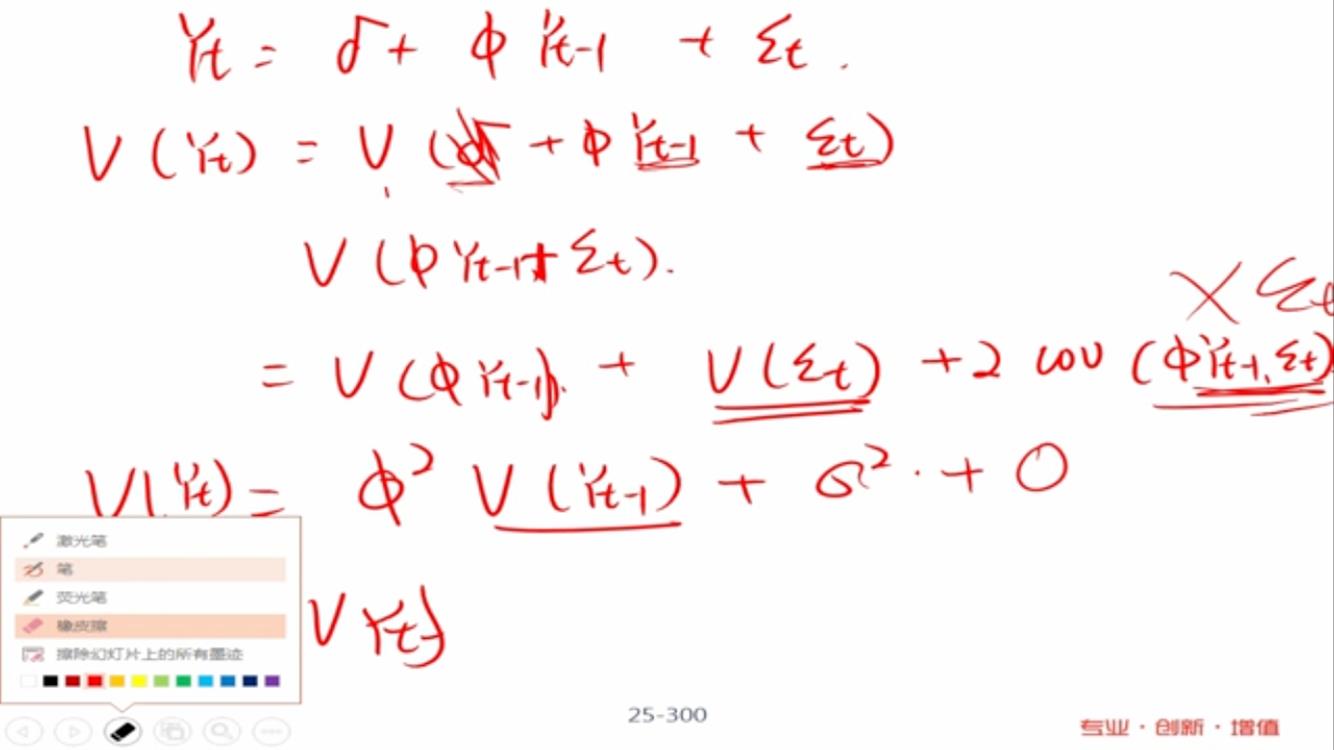 Yt = δ + φ Yt-1 + Σt .
V (Yt) = V (δ + φ Yt-1 + Σt)
V (φ Yt-1 + Σt).
X Σt
= V (φ Yt-1). + V (Σt) + 2 cov (φ Yt-1, Σt)
V(Yt) = φ² V (Yt-1) + σ² . + 0
激光笔
笔
荧光笔
橡皮擦
擦除幻灯片上的所有墨迹
V Yt)
25-300
专业 · 创新 · 增值